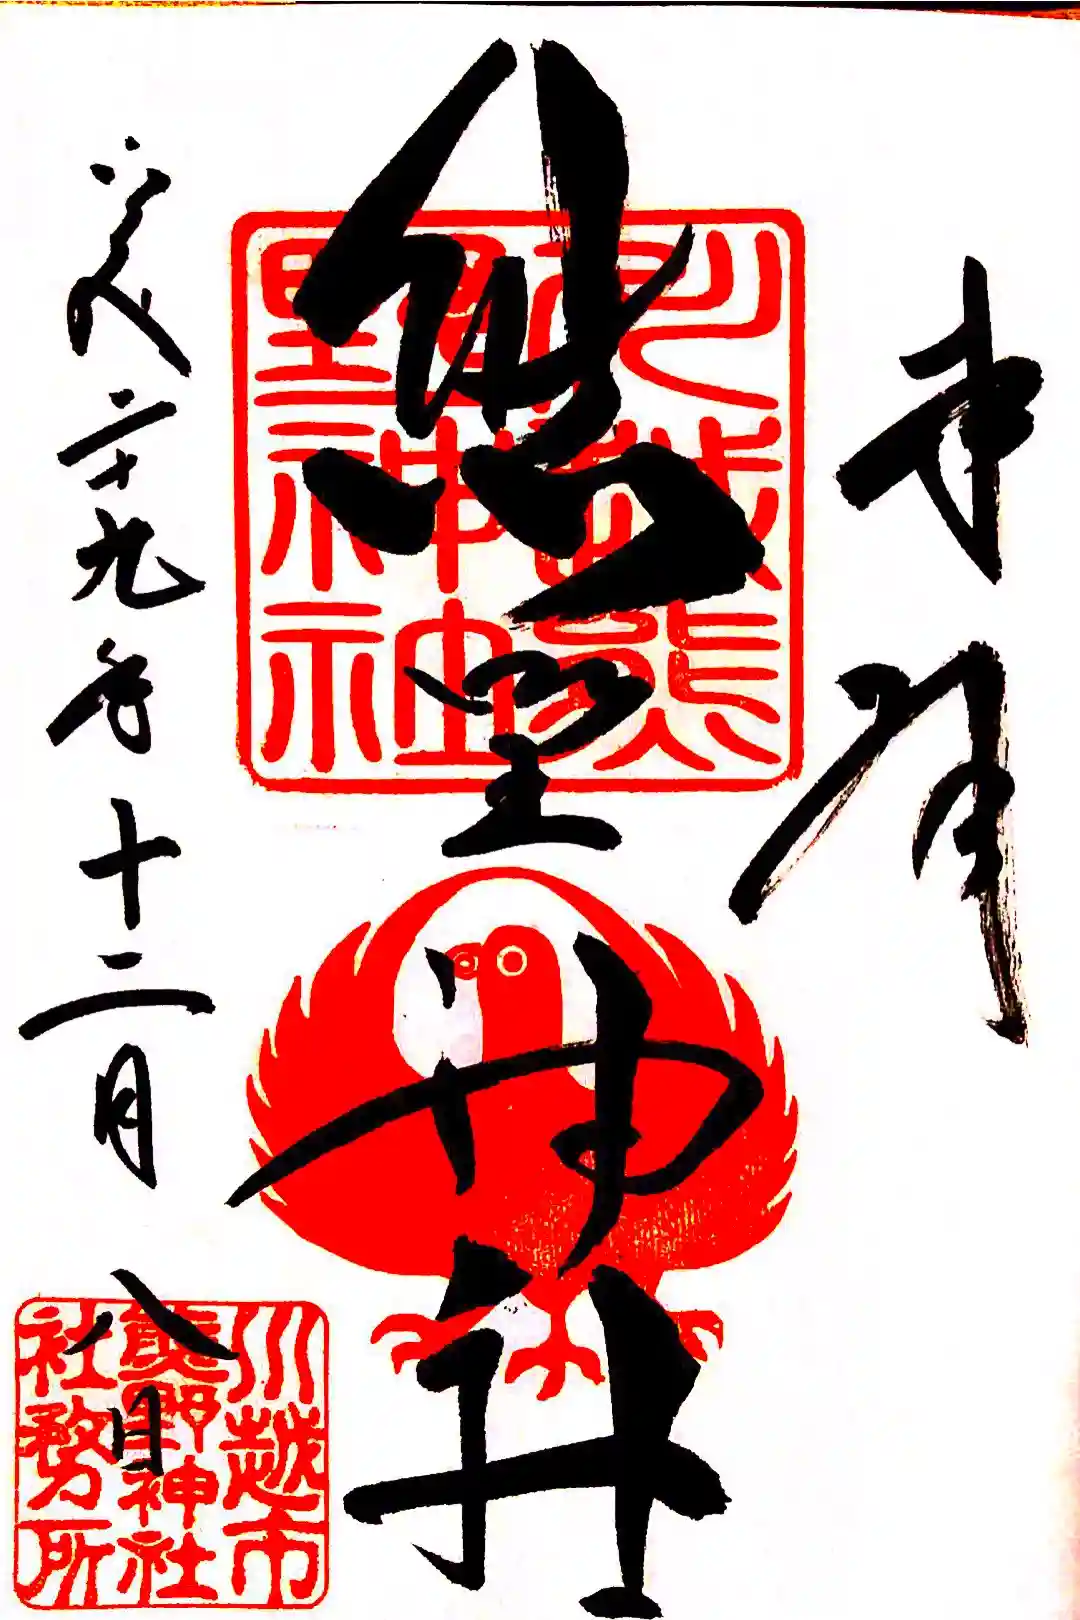 奉拝
熊野神社
平成二十九年十二月八日
川越熊
野神社
川越市
熊野神社
社務所